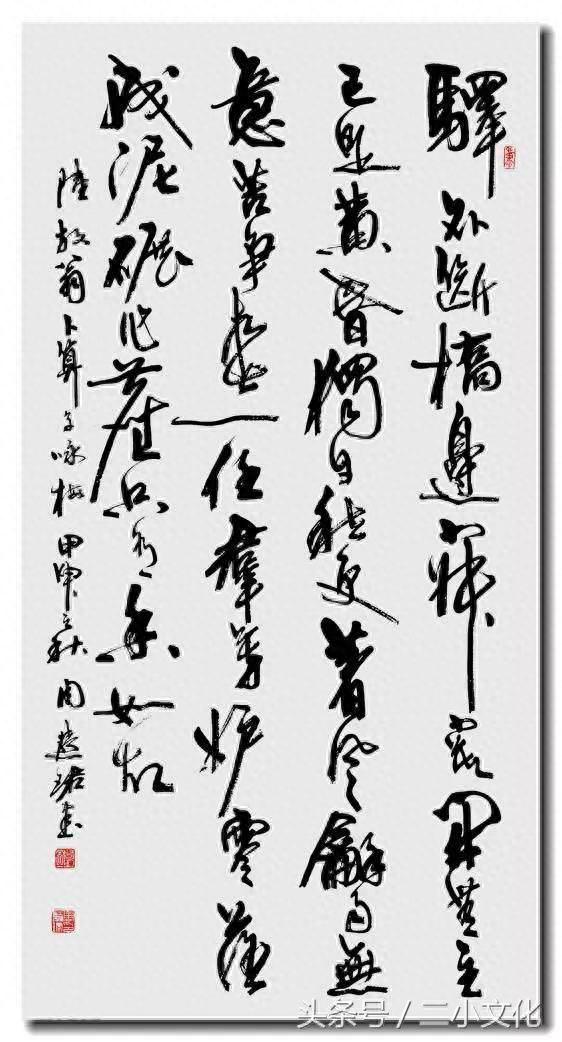 驛外斷橋邊寂寞開無主
已是黃昏獨自愁更著風龢雨無
意苦爭春一任羣芳妒零落
成泥碾作塵只有香如故
陸放翁卜算子咏梅 甲申之秋 周慧珺書
头条号 / 二小文化